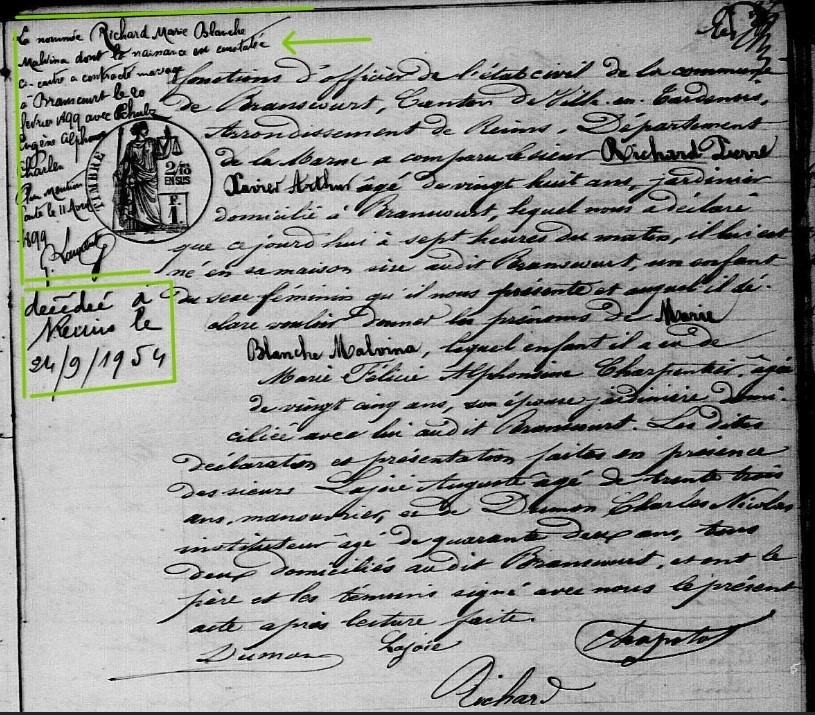 La nommée Richard Marie Blanche
Malvina dont la naissance est constatée
ci-contre a contracté mariage
à Branscourt le 20
février 1899 avec Schulz
Eugène Alphonse
Charles
Pour Mention
faite le 11 Avril
1899
décédée à
Reims le
24/9/1954
TIMBRE
2/10
EN SUS
F.
1
fonctions d'officier de l'état civil de la commune
de Branscourt, Canton de Ville-en-Tardenois,
Arrondissement de Reims, Département
de la Marne a comparu le sieur Richard Pierre
Xavier Arthur âgé de vingt huit ans, jardinier
domicilié à Branscourt, lequel nous a déclaré
que cejourd'hui à sept heures du matin, il lui est
né en sa maison sise audit Branscourt, un enfant
du sexe féminin qu'il nous présente et auquel il dé-
clare vouloir donner les prénoms de Marie
Blanche Malvina, lequel enfant il a eu de
Marie Félicie Alphonsine Charpentier, âgée
de vingt cinq ans, son épouse jardinière domi-
ciliée avec lui audit Branscourt. Les dites
déclaration et présentation faites en présence
des sieurs Lajoie Auguste âgé de trente trois
ans, manouvrier, et de Dumon Charles Nicolas
instituteur âgé de quarante deux ans, tous
deux domiciliés audit Branscourt, et ont le
père et les témoins signé avec nous le présent
acte après lecture faite.
Dumon Lajoie
Richard